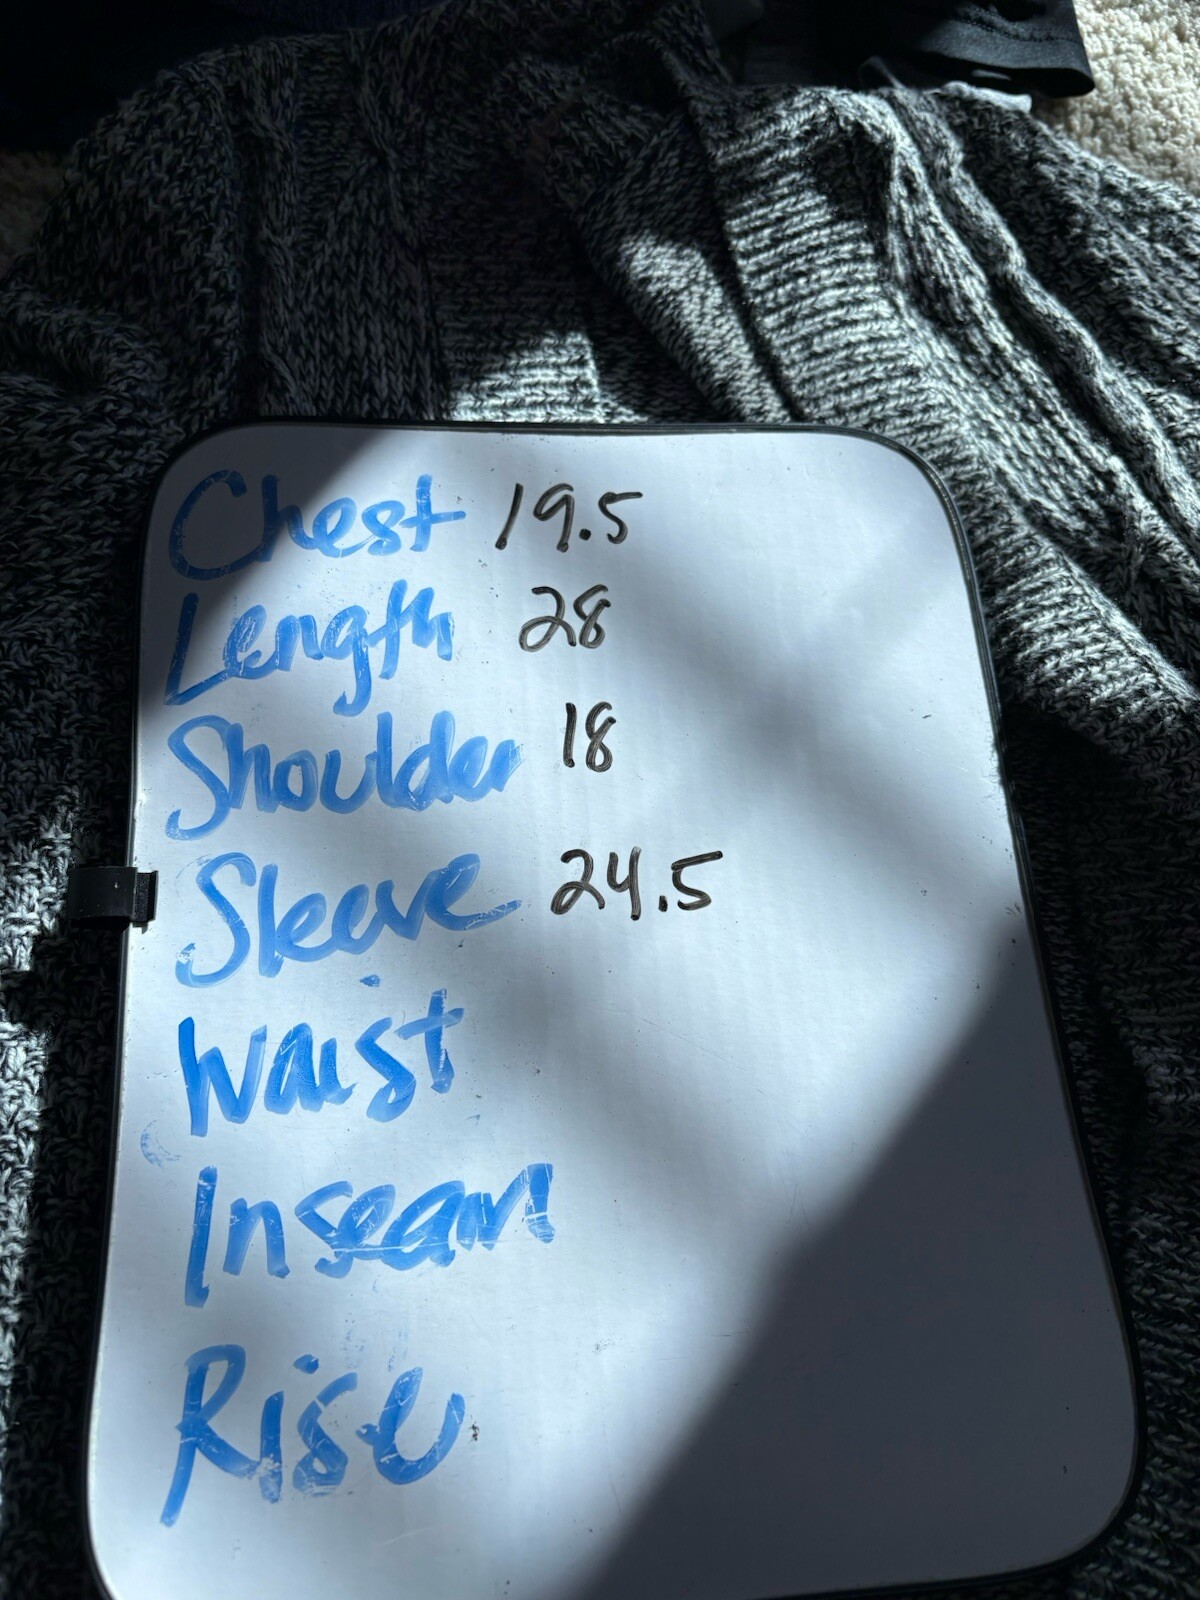 Chest 19.5
Length 28
Shoulder 18
Sleeve 24.5
Waist
Inseam
Rise